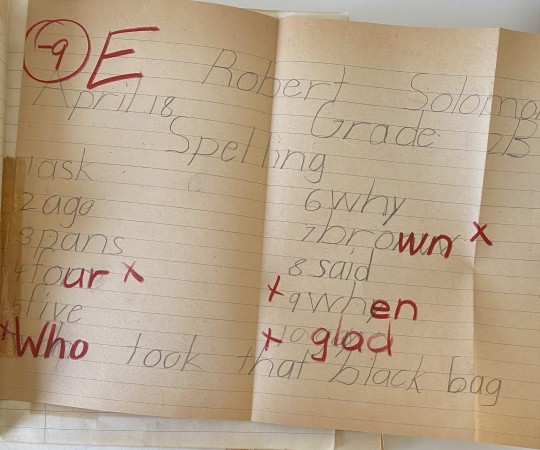 -9 E
Robert Solomo
April 18
Grade 2B
Spelling
1 ask
2 ago
3 pans
4 four x
5 five
6 why
7 brown x
8 said
x 9 when
x 10 glad
x Who took that black bag